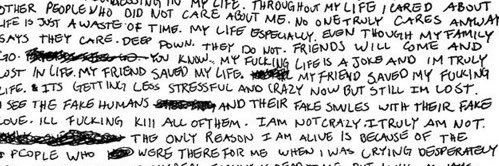 IN MY LIFE. THROUGHOUT MY LIFE I CARED ABOUT
OTHER PEOPLE WHO DID NOT CARE ABOUT ME. NO ONE TRULY CARES ANYWAY
LIFE IS JUST A WASTE OF TIME. MY LIFE ESPECIALLY. EVEN THOUGH MY FAMILY
SAYS THEY CARE. DEEP DOWN. THEY DO NOT. FRIENDS WILL COME AND
GO. YOU KNOW.. MY FUCKING LIFE IS A JOKE AND IM TRULY
LOST IN LIFE. MY FRIEND SAVED MY LIFE. MY FRIEND SAVED MY FUCKING
LIFE. & ITS GETTING LESS STRESSFUL AND CRAZY NOW BUT STILL IM LOST.
I SEE THE FAKE HUMANS AND THEIR FAKE SMILES WITH THEIR FAKE
LOVE. ILL FUCKING KILL ALL OF THEM. I AM NOT CRAZY. I TRULY AM NOT.
THE ONLY REASON I AM ALIVE IS BECAUSE OF THE
PEOPLE WHO WERE THERE FOR ME WHEN I WAS CRYING DESPERATELY